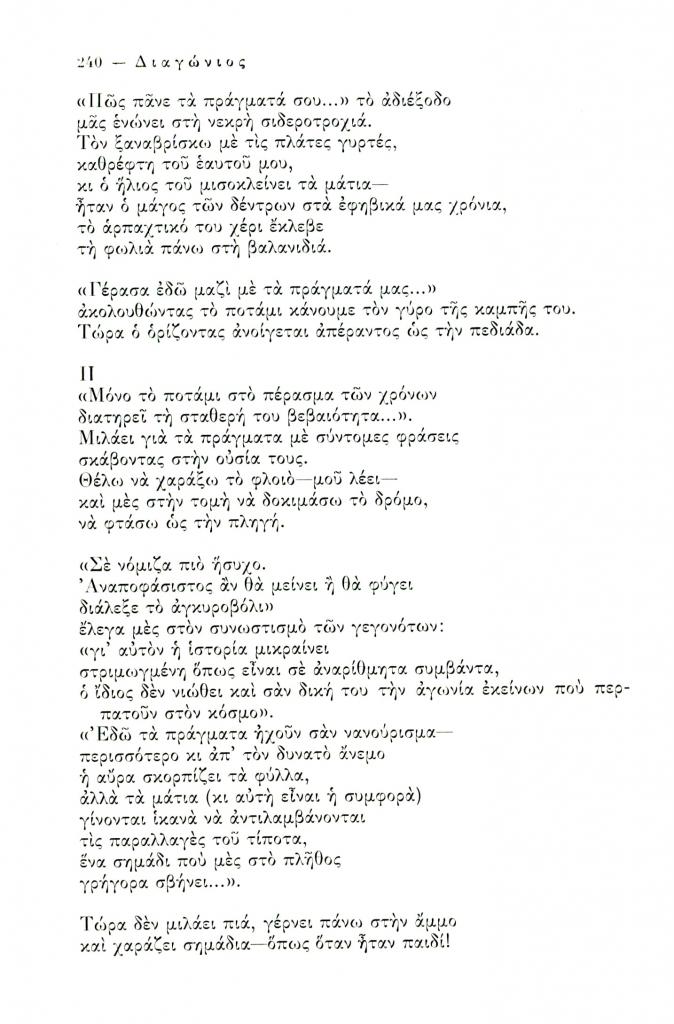 240 — Διαγώνιος
«Πῶς πᾶνε τὰ πράγματά σου...» τὸ ἀδιέξοδο
μᾶς ἑνώνει στὴ νεκρὴ σιδεροτροχιά.
Τὸν ξαναβρίσκω μὲ τὶς πλάτες γυρτές,
καθρέφτη τοῦ ἑαυτοῦ μου,
κι ὁ ἥλιος τοῦ μισοκλείνει τὰ μάτια—
ἦταν ὁ μάγος τῶν δέντρων στὰ ἐφηβικά μας χρόνια,
τὸ ἁρπαχτικό του χέρι ἔκλεβε
τὴ φωλιὰ πάνω στὴ βαλανιδιά.
«Γέρασα ἐδῶ μαζὶ μὲ τὰ πράγματά μας...»
ἀκολουθώντας τὸ ποτάμι κάνουμε τὸν γύρο τῆς καμπῆς του.
Τώρα ὁ ὁρίζοντας ἀνοίγεται ἀπέραντος ὡς τὴν πεδιάδα.
II
«Μόνο τὸ ποτάμι στὸ πέρασμα τῶν χρόνων
διατηρεῖ τὴ σταθερή του βεβαιότητα...».
Μιλάει γιὰ τὰ πράγματα μὲ σύντομες φράσεις
σκάβοντας στὴν οὐσία τους.
Θέλω νὰ χαράξω τὸ φλοιὸ—μοῦ λέει—
καὶ μὲς στὴν τομὴ νὰ δοκιμάσω τὸ δρόμο,
νὰ φτάσω ὡς τὴν πληγή.
«Σὲ νόμιζα πιὸ ἥσυχο.
Ἀναποφάσιστος ἂν θὰ μείνει ἢ θὰ φύγει
διάλεξε τὸ ἀγκυροβόλι»
ἔλεγα μὲς στὸν συνωστισμὸ τῶν γεγονότων:
«γι' αὐτὸν ἡ ἱστορία μικραίνει
στριμωγμένη ὅπως εἶναι σὲ ἀναρίθμητα συμβάντα,
ὁ ἴδιος δὲν νιώθει καὶ σὰν δική του τὴν ἀγωνία ἐκείνων ποὺ περ-
πατοῦν στὸν κόσμο».
«Ἐδῶ τὰ πράγματα ἠχοῦν σὰν νανούρισμα—
περισσότερο κι ἀπ' τὸν δυνατὸ ἄνεμο
ἡ αὔρα σκορπίζει τὰ φύλλα,
ἀλλὰ τὰ μάτια (κι αὐτὴ εἶναι ἡ συμφορὰ)
γίνονται ἱκανὰ νὰ ἀντιλαμβάνονται
τὶς παραλλαγὲς τοῦ τίποτα,
ἕνα σημάδι ποὺ μὲς στὸ πλῆθος
γρήγορα σβήνει...».
Τώρα δὲν μιλάει πιά, γέρνει πάνω στὴν ἄμμο
καὶ χαράζει σημάδια—ὅπως ὅταν ἦταν παιδί!